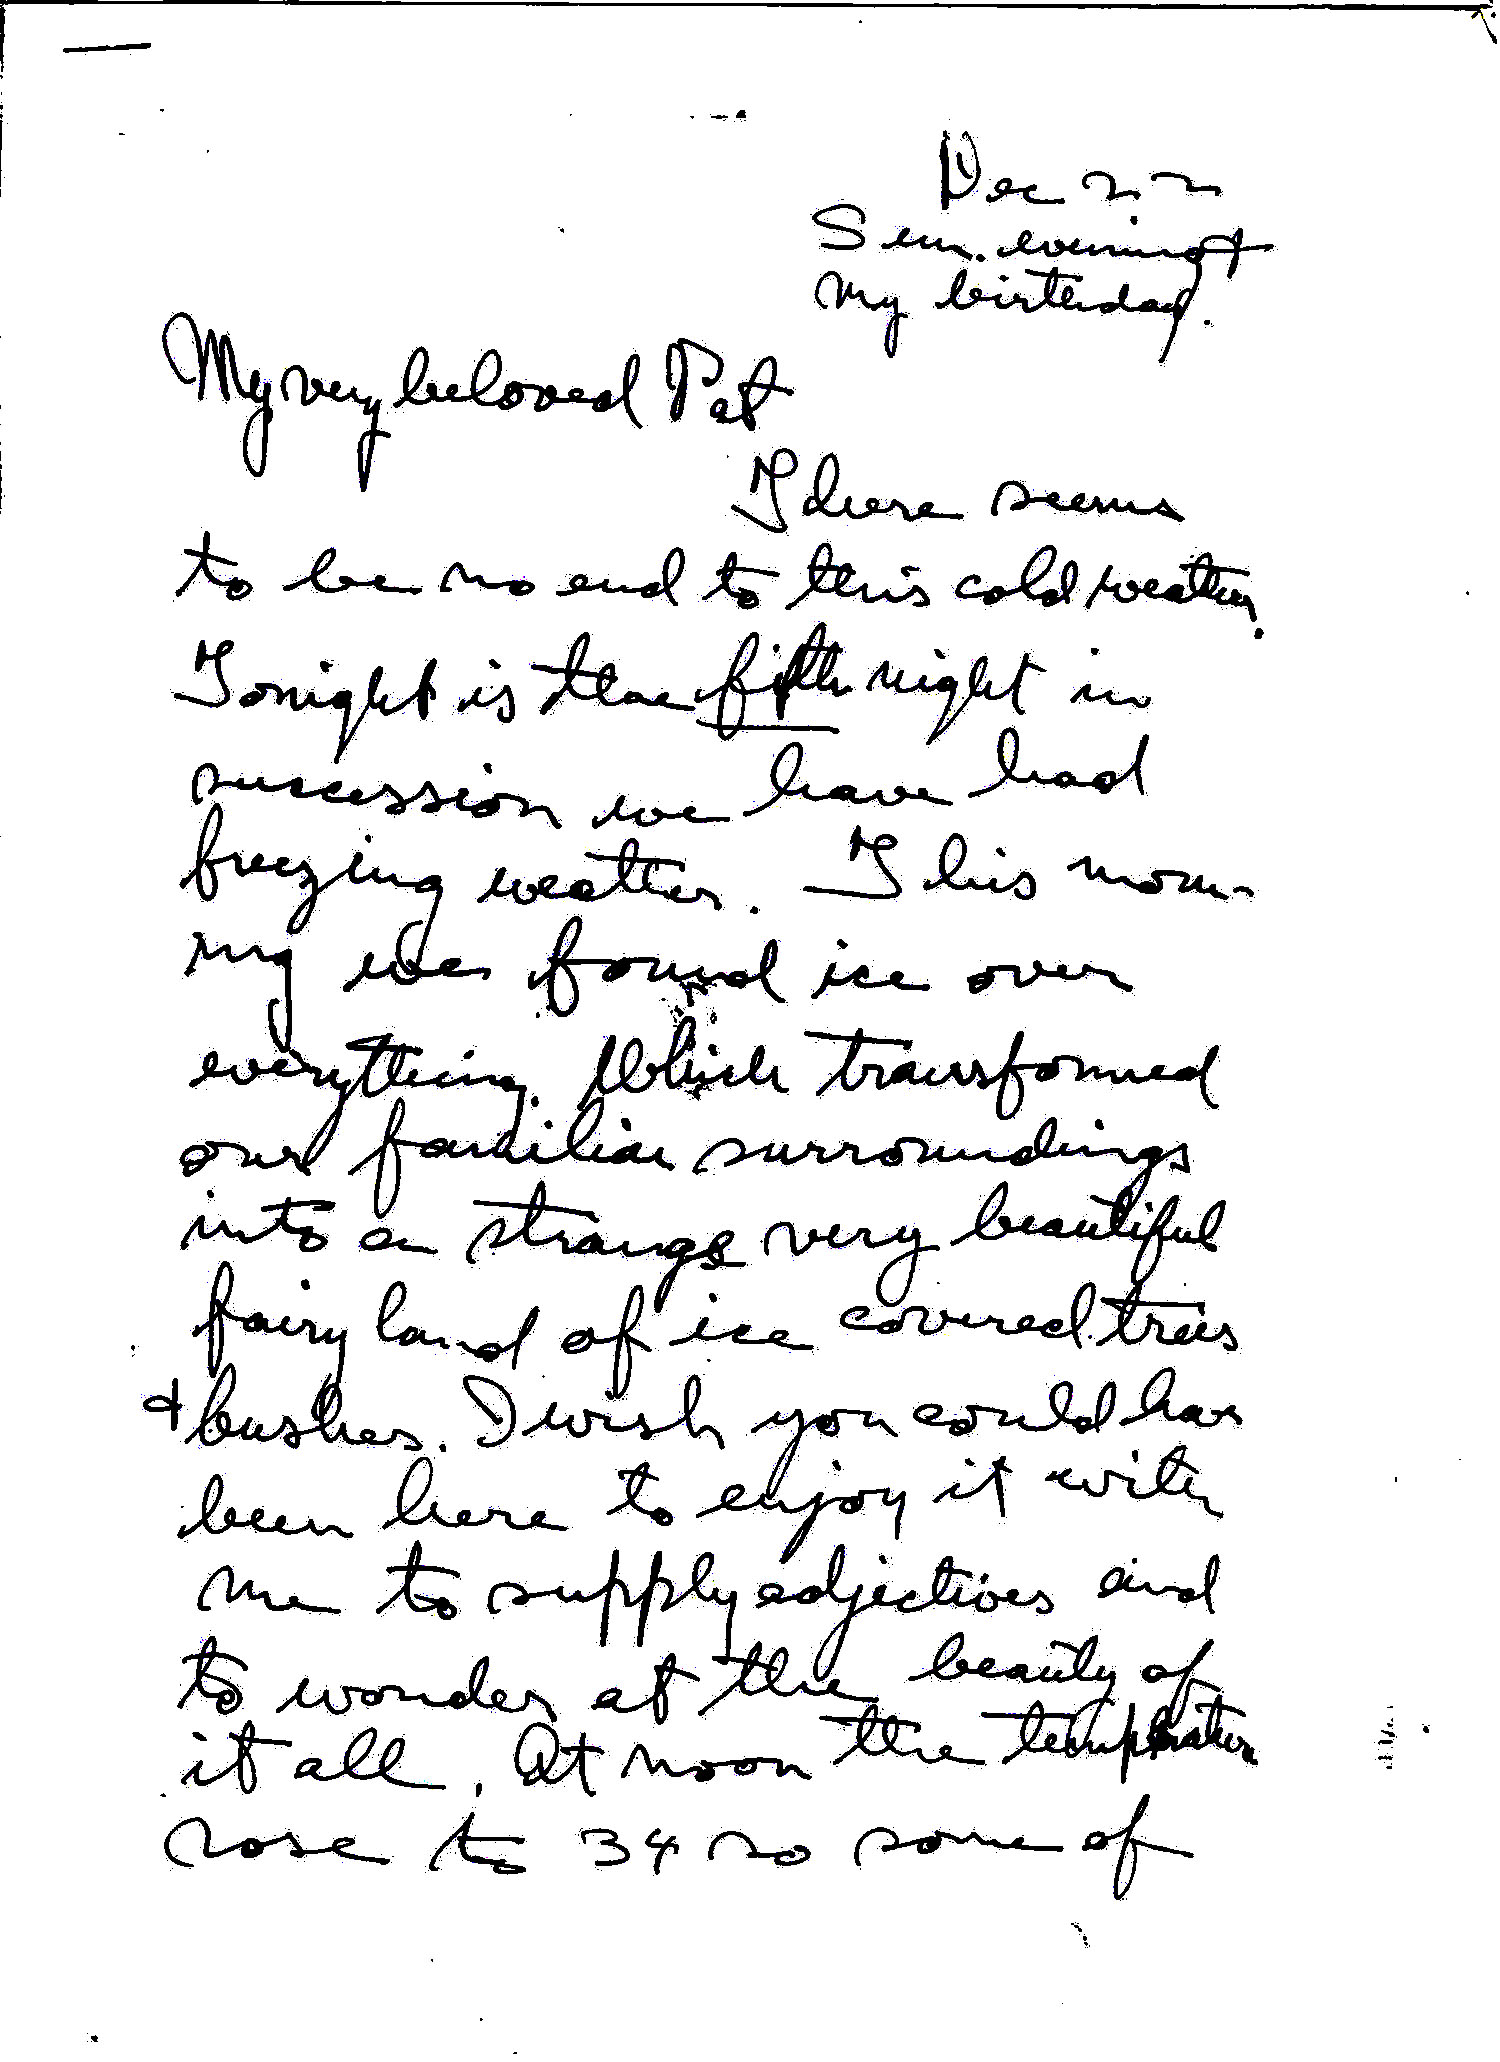 Dec 22
Sun. evening +
my birthday.
My very beloved Pat
There seems
to be no end to this cold weather.
Tonight is the fifth night in
succession we have had
freezing weather. This morn-
ing we found ice over
everything. Which transformed
our familiar surroundings
into a strange very beautiful
fairy land of ice covered trees
& bushes. I wish you could have
been here to enjoy it with
me to supply adjectives and
to wonder at the beauty of
it all. At noon the temperature
rose to 34 so some of